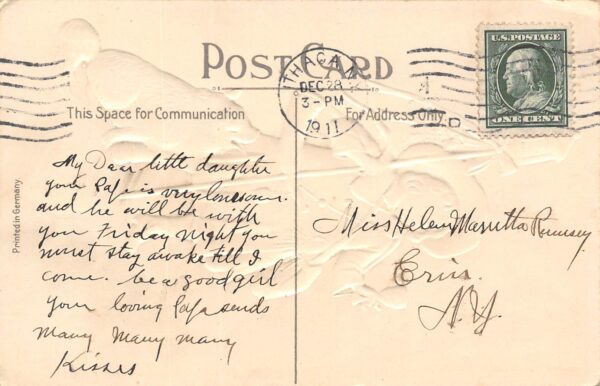 POST CARD
ITHACA, N.Y.
DEC 28
3-PM
1911
U.S. POSTAGE
ONE CENT
This Space for Communication
For Address Only.
Printed in Germany.
My Dear little daughter
your Papa is very lonesome.
and he will be with
you Friday night you
must stay awake till I
come. be a good girl
your loving Papa sends
many many many
Kisses
Miss Helen Marritta Rumsey
Erin.
N.Y.